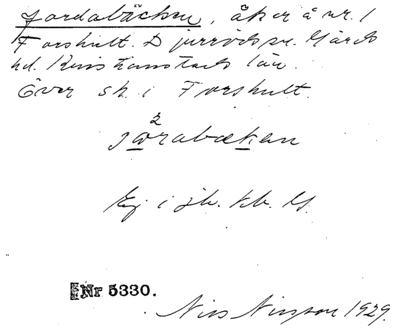 Jordabäcken, åker å nr. 1
Forshult. Djurrödssn. Gärds
hd. Kristianstads län.
Över sk. i Forshult.
2
jorabækan
Ej i jb.
Nr 5330.
Nils Nilsson 1929.